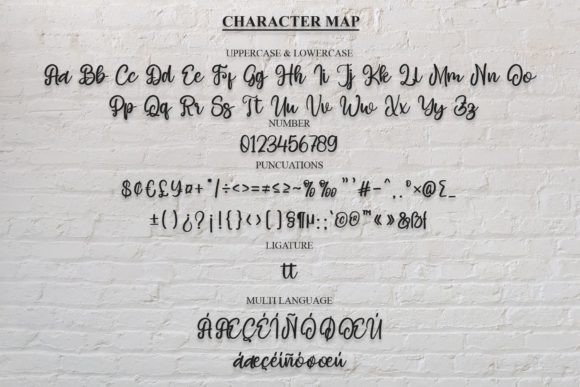 CHARACTER MAP
UPPERCASE & LOWERCASE
Aa Bb Cc Dd Ee Ff Gg Hh Ii Jj Kk Ll Mm Nn Oo
Pp Qq Rr Ss Tt Uu Vv Ww Xx Yy Zz
NUMBER
0123456789
PUNCUATIONS
$¢€£¥¤+*/÷<>=≠≤≥~%‰"'#-^,.º×@Σ_
±()¿?¡!{}‹›[]§¶µ:;`©®™«»&ßƒ
LIGATURE
tt
MULTI LANGUAGE
ÁÆÇÉÍÑÓØŒÚ
áæçéíñóøœú